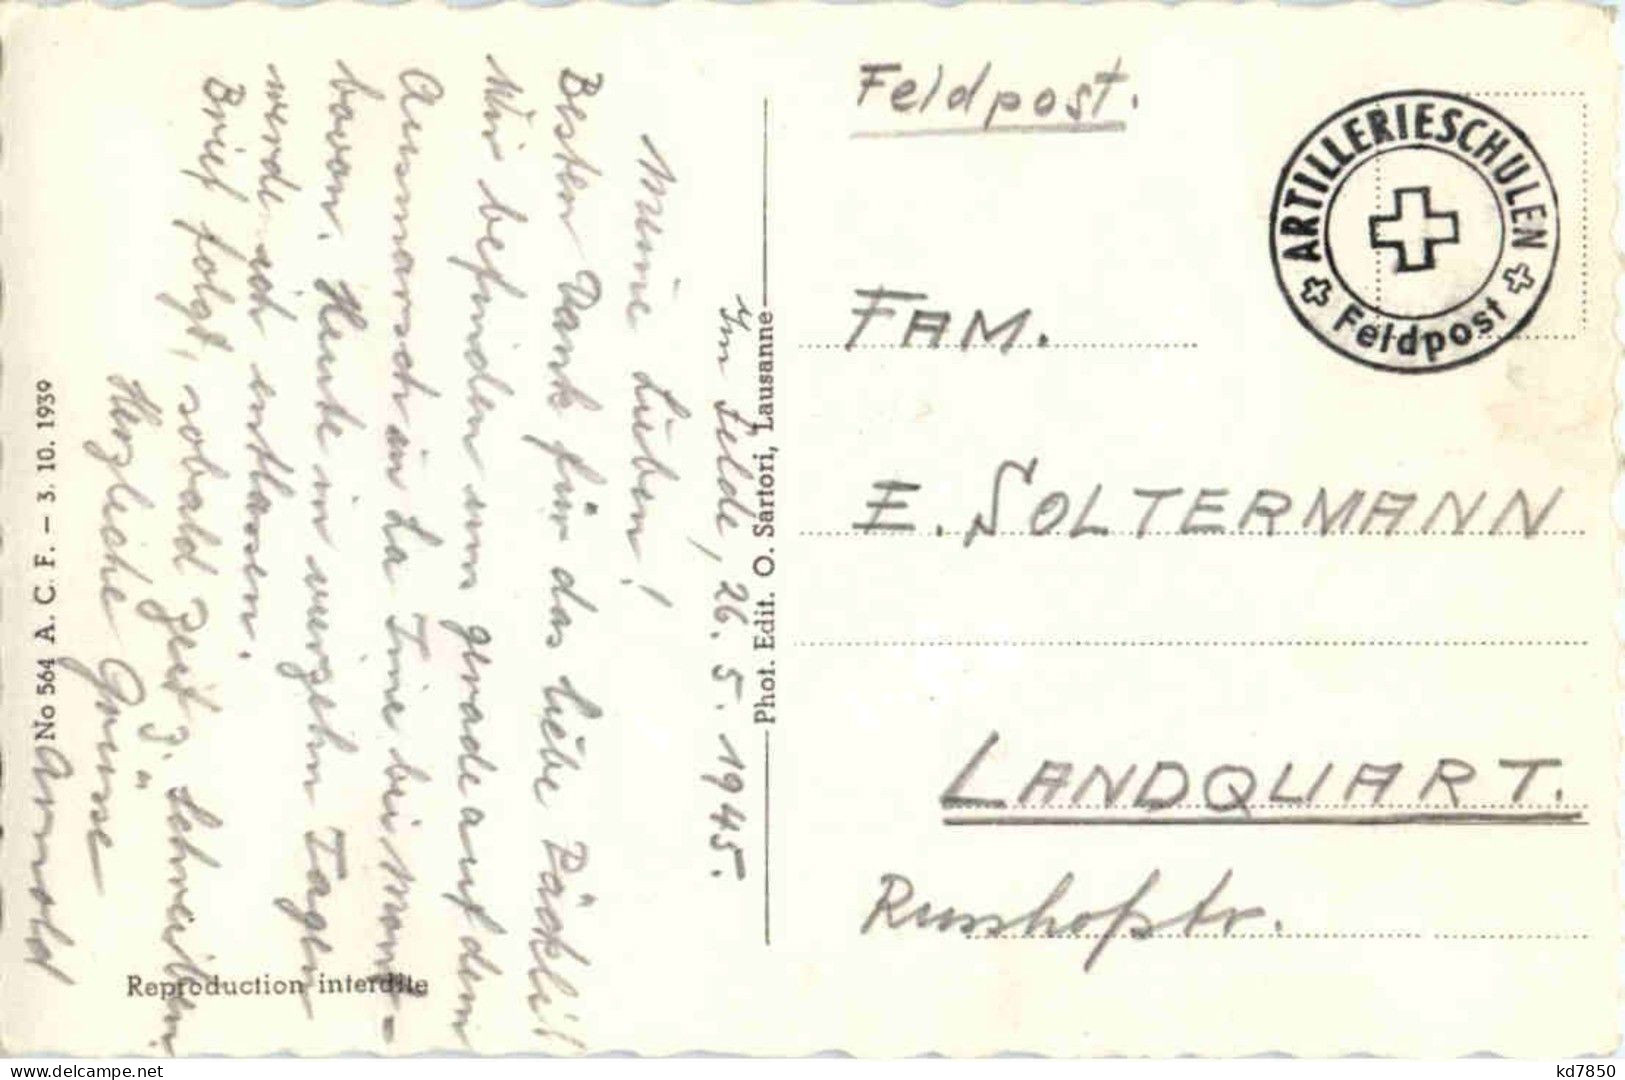 Im Felde, 26. 5. 1945.
Meine Lieben!
Besten Dank für das liebe Päckli!
Wir befinden uns gerade auf dem
Ausmarsch in La Tine bei Mont-
bovon. Heute in vierzehn Tagen
werde ich entlassen.
Brief folgt, sobald Zeit z. Schreiben
Herzliche Grüsse
Arnold
No 564 A. C. F. – 3. 10. 1939
Reproduction interdite
Phot. Edit. O. Sartori, Lausanne
Feldpost.
ARTILLERIESCHULEN
Feldpost
FAM.
E. SOLTERMANN
LANDQUART.
kd7850